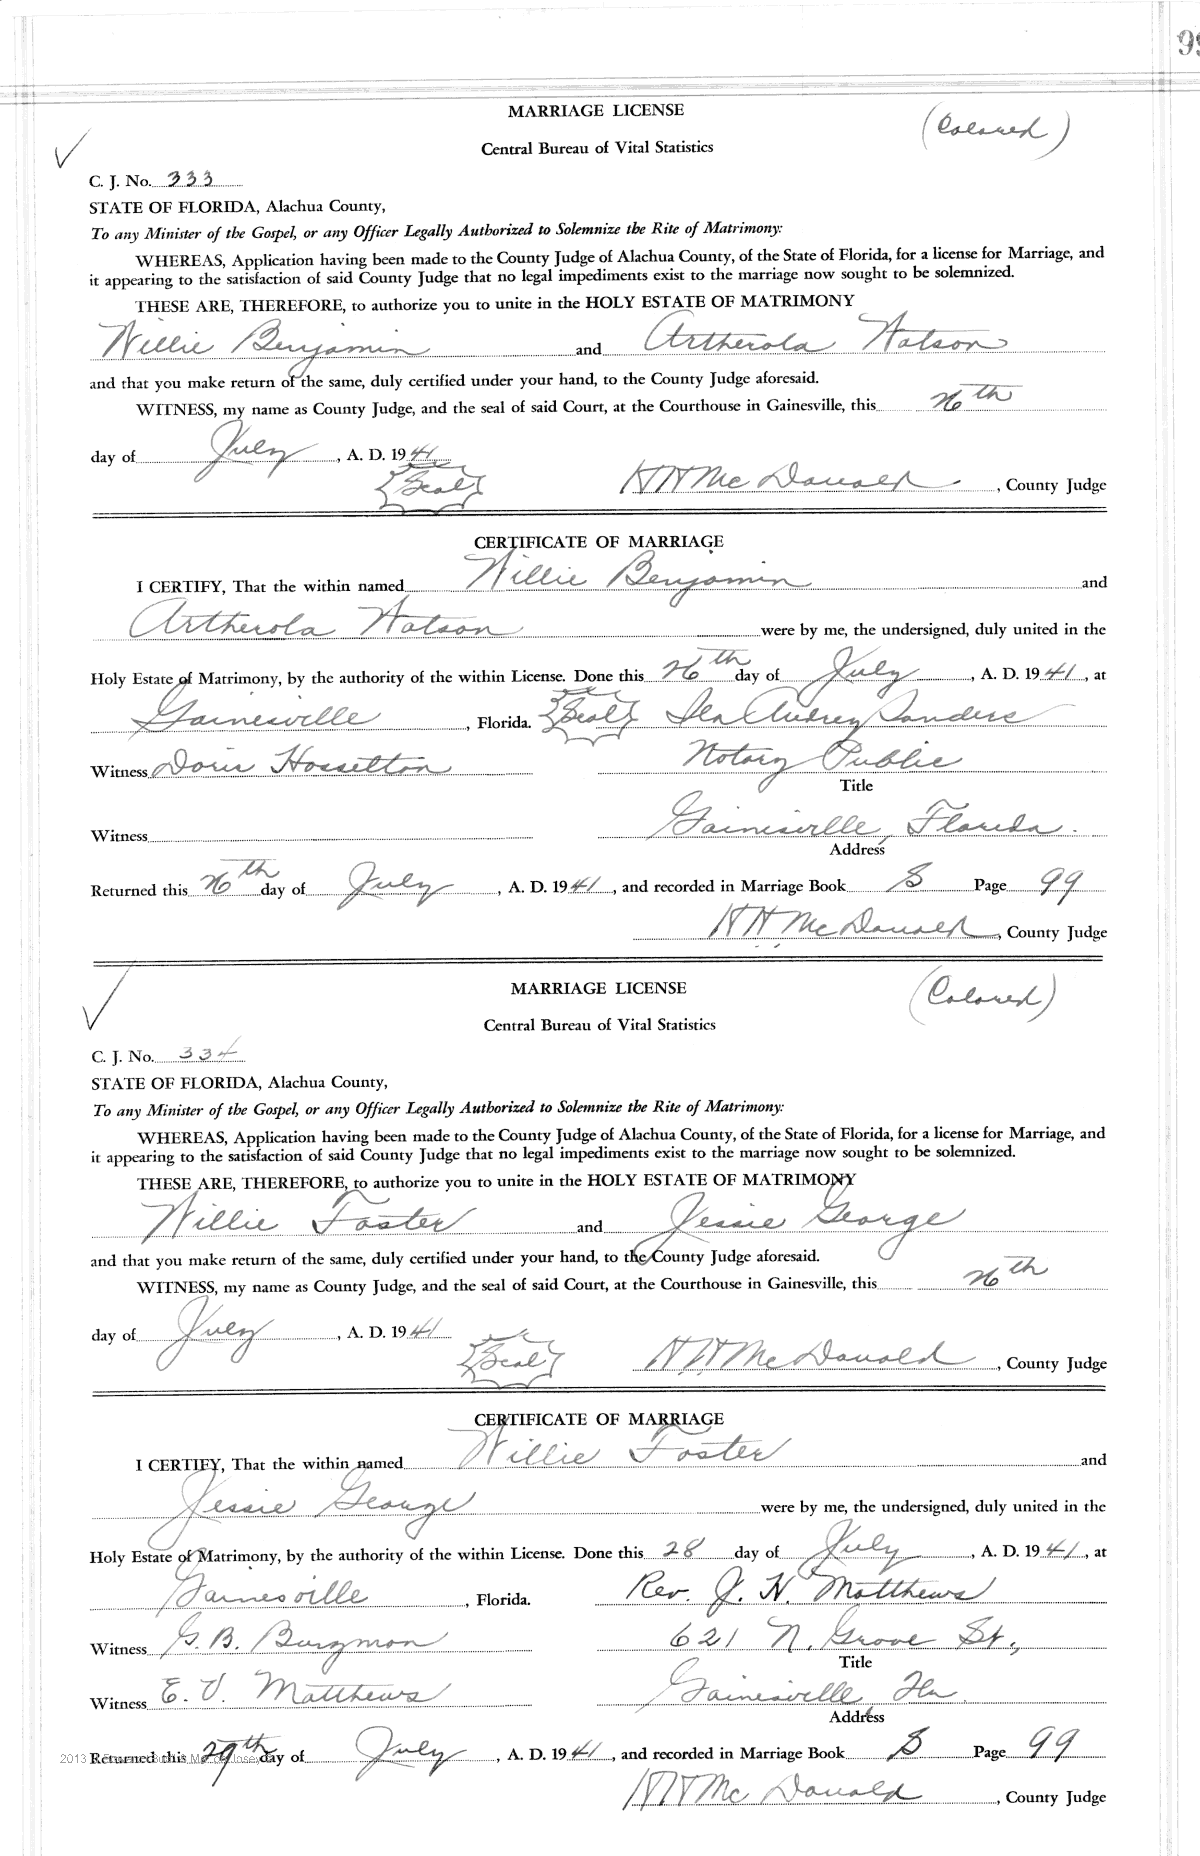 99
MARRIAGE LICENSE
(Colored)
Central Bureau of Vital Statistics
C. J. No. 333
STATE OF FLORIDA, Alachua County,
To any Minister of the Gospel, or any Officer Legally Authorized to Solemnize the Rite of Matrimony:
WHEREAS, Application having been made to the County Judge of Alachua County, of the State of Florida, for a license for Marriage, and
it appearing to the satisfaction of said County Judge that no legal impediments exist to the marriage now sought to be solemnized.
THESE ARE, THEREFORE, to authorize you to unite in the HOLY ESTATE OF MATRIMONY
Willie Benjamin and Artherola Watson
and that you make return of the same, duly certified under your hand, to the County Judge aforesaid.
WITNESS, my name as County Judge, and the seal of said Court, at the Courthouse in Gainesville, this 26th
day of July, A. D. 1941
Seal HH McDonald, County Judge
CERTIFICATE OF MARRIAGE
I CERTIFY, That the within named Willie Benjamin and
Artherola Watson were by me, the undersigned, duly united in the
Holy Estate of Matrimony, by the authority of the within License. Done this 26th day of July, A. D. 1941, at
Gainesville, Florida. Seal Ila Audrey Sanders
Witness Doris Hosselton Notary Public
Title
Witness Gainesville, Florida.
Address
Returned this 26th day of July, A. D. 1941, and recorded in Marriage Book S Page 99
HH McDonald, County Judge
MARRIAGE LICENSE
(Colored)
Central Bureau of Vital Statistics
C. J. No. 334
STATE OF FLORIDA, Alachua County,
To any Minister of the Gospel, or any Officer Legally Authorized to Solemnize the Rite of Matrimony:
WHEREAS, Application having been made to the County Judge of Alachua County, of the State of Florida, for a license for Marriage, and
it appearing to the satisfaction of said County Judge that no legal impediments exist to the marriage now sought to be solemnized.
THESE ARE, THEREFORE, to authorize you to unite in the HOLY ESTATE OF MATRIMONY
Willie Foster and Jessie George
and that you make return of the same, duly certified under your hand, to the County Judge aforesaid.
WITNESS, my name as County Judge, and the seal of said Court, at the Courthouse in Gainesville, this 26th
day of July, A. D. 1941
Seal HH McDonald, County Judge
CERTIFICATE OF MARRIAGE
I CERTIFY, That the within named Willie Foster and
Jessie George were by me, the undersigned, duly united in the
Holy Estate of Matrimony, by the authority of the within License. Done this 28 day of July, A. D. 1941, at
Gainesville, Florida. Rev. J. H. Matthews
Witness G. B. Burgmon 621 N. Grove St.,
Title
Witness E. V. Matthews Gainesville Fla.
Address
2013
Returned this 29th day of July, A. D. 1941, and recorded in Marriage Book S Page 99
HH McDonald, County Judge